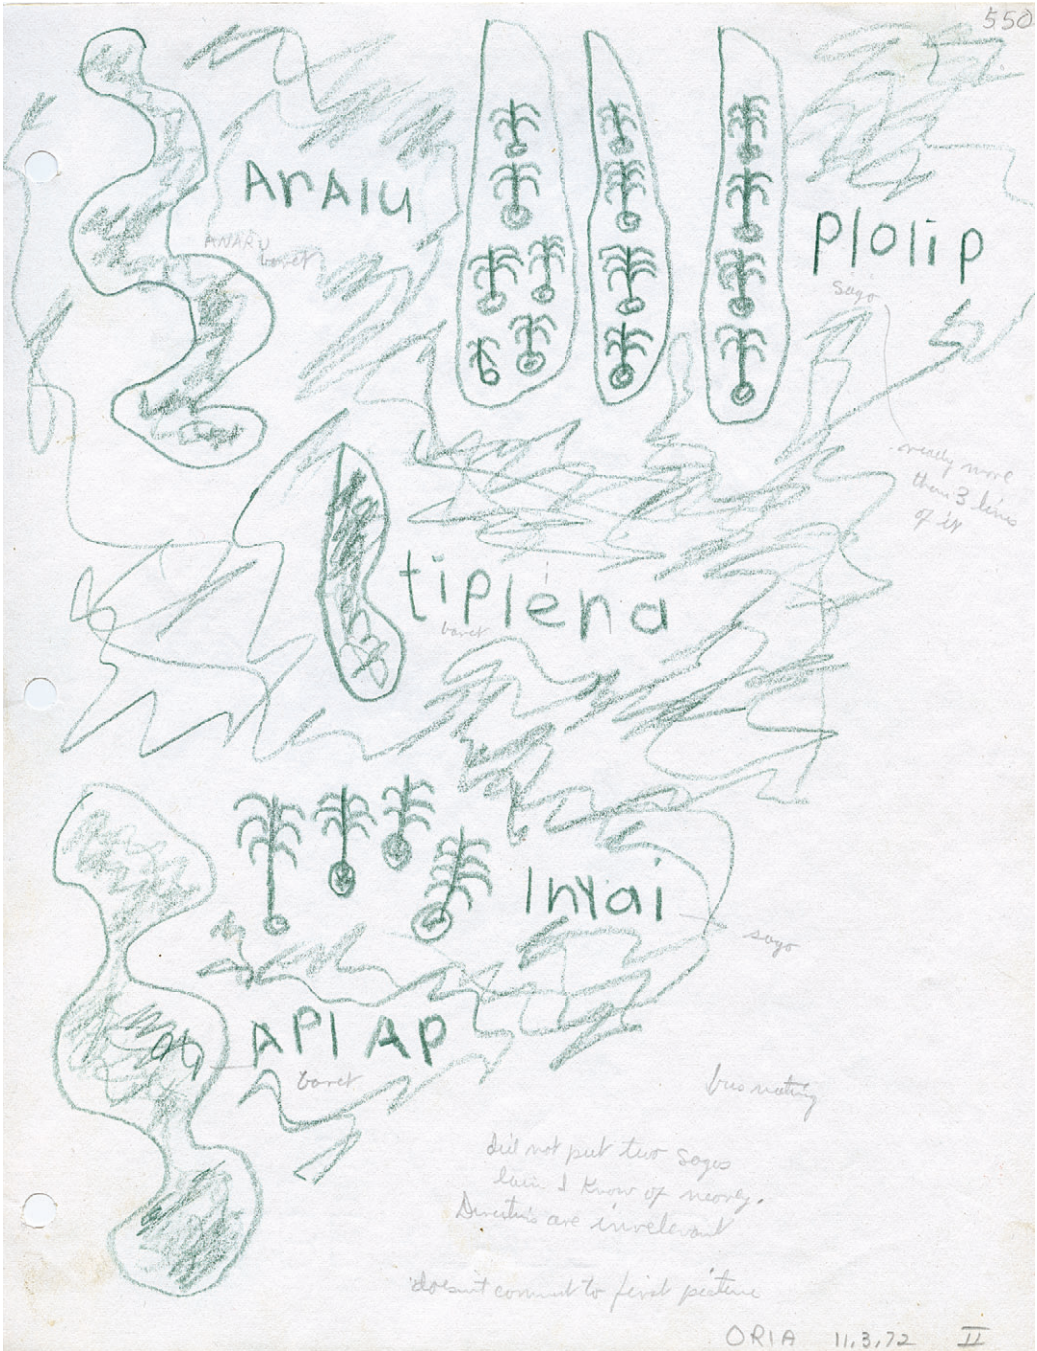 550
ArAlu
ANARU
baret
plolip
sago
more
than 3 lines
of it
tipléna
baret
Inyai
sago
API AP
baret
bus nating
did not put two sagos
I know of nearby.
Directions are irrelevant
doesn't connect to first picture
ORIA 11.3.72 II